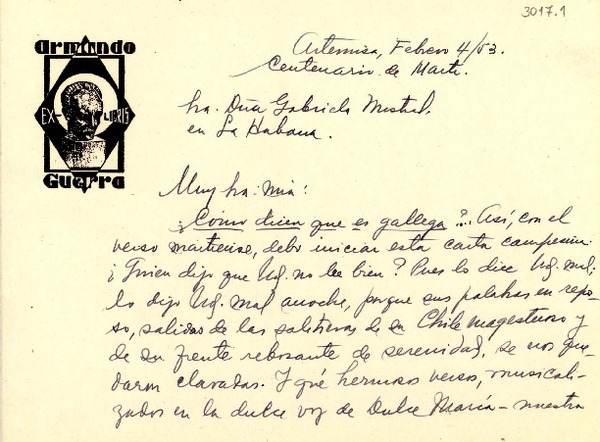 3017.1
Armando
EX-LIBRIS
Guerra
Artemisa, Febrero 4/53.
Centenario de Martí.
Sra. Dña Gabriela Mistral,
en La Habana.
Muy Sra. mía:
¿Cómo dicen que es gallega?... Así, con el
verso martiense, debo iniciar esta carta campesina.
¿Quién dijo que Ud. no lee bien? Pues lo dice Ud. mal;
lo dijo Ud. mal anoche, porque sus palabras en repo-
so, salidas de las salitreras de su Chile magestuoso y
de su frente rebozante de serenidad, se nos que-
daron clavadas. Y qué hermosos versos, musicali-
zados en la dulce voz de Dulce María - nuestra